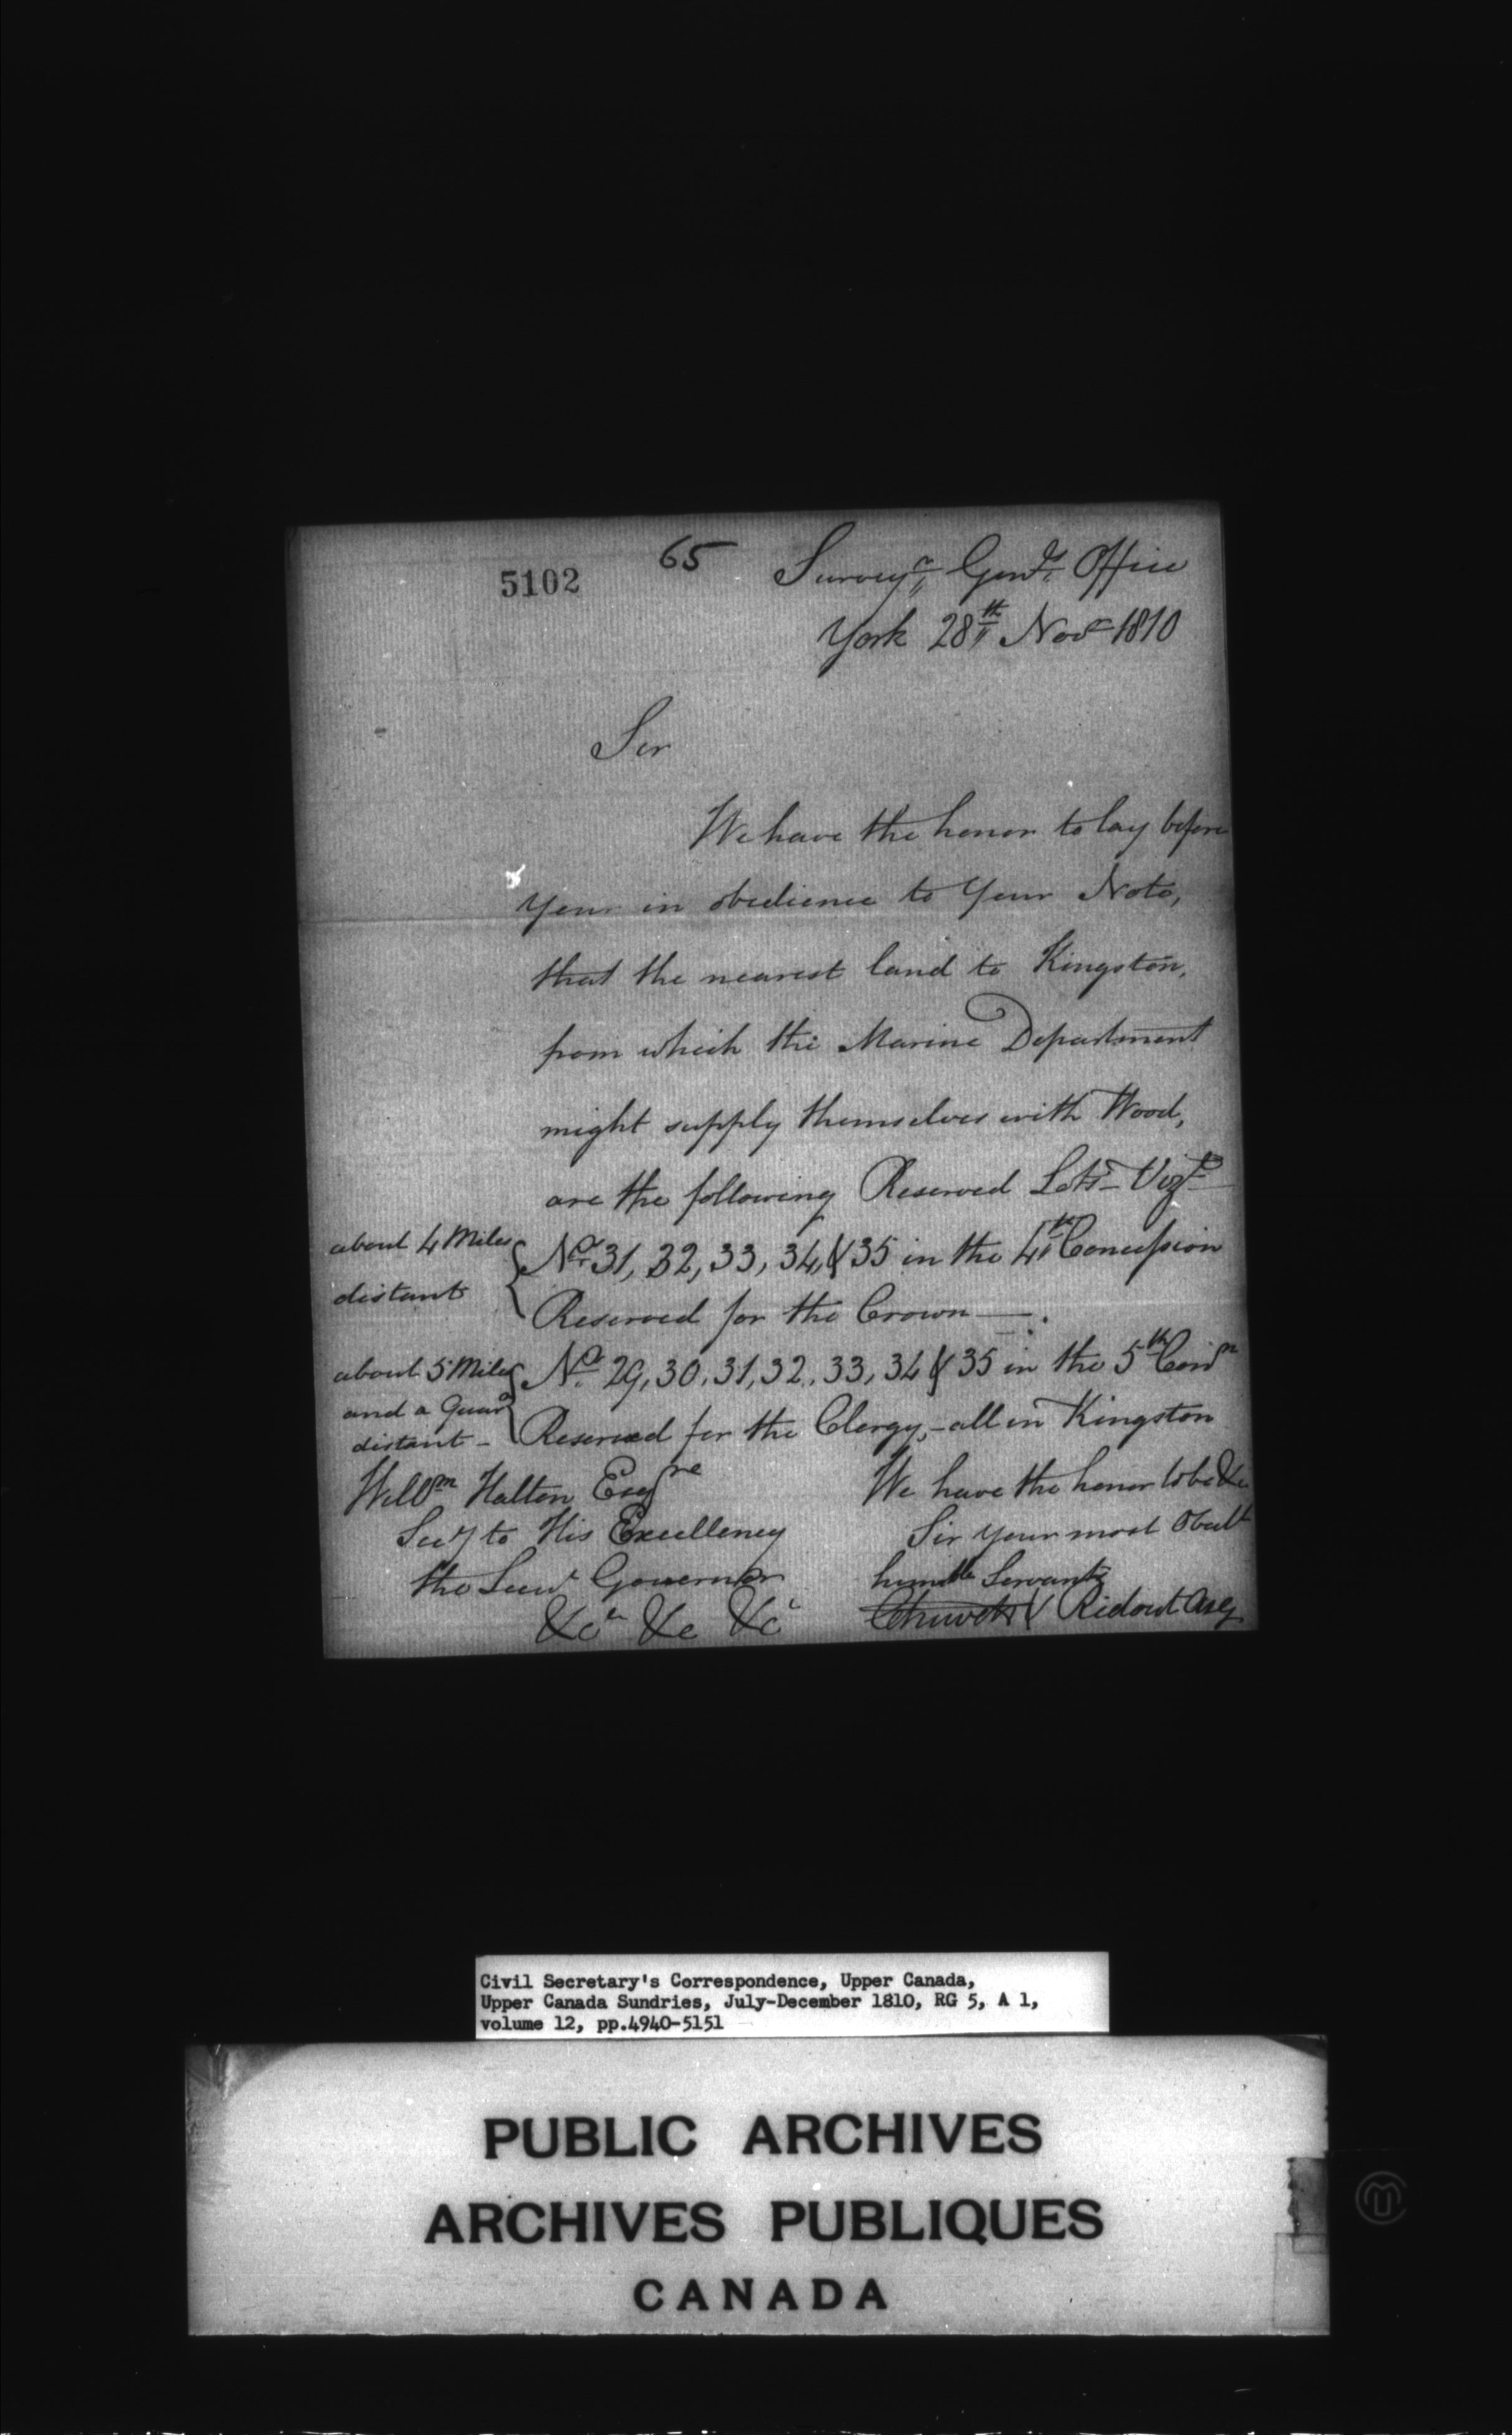 5102
65
Surveyr Genls Office
York 28th Novr 1810
Sir
We have the honor to lay before
Your in obedience to Your Note,
that the nearest land to Kingston,
from which the Marine Department
might supply themselves with Wood,
are the following Reserved Lots Vizt
about 4 Miles
distant
Nos 31, 32, 33, 34, & 35 in the 4th Concession
Reserved for the Crown —.
about 5 Miles
and a Quarr
distant -
Nos 29, 30, 31, 32, 33, 34 & 35 in the 5th Conn
Reserved for the Clergy, - all in Kingston
Willm Halton Esqre
Secy to His Excellency
the Lieut Governor
&ca &c &c
We have the honor to be &c
Sir Your most Obedt
humble Servants
Chewett & Ridout
Civil Secretary's Correspondence, Upper Canada,
Upper Canada Sundries, July-December 1810, RG 5, A 1,
volume 12, pp.4940-5151
PUBLIC ARCHIVES
ARCHIVES PUBLIQUES
CANADA